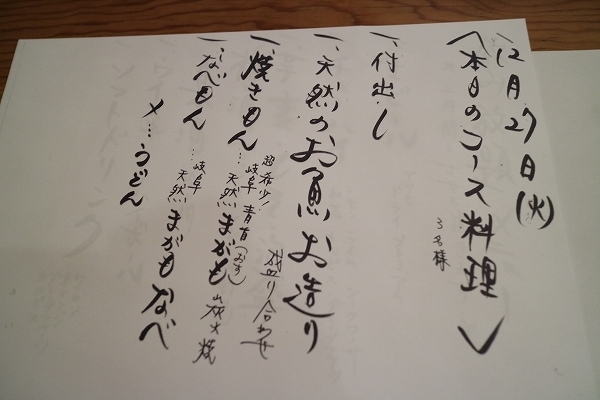 12月27日(火)
〈本日のコース料理〉
3名様
一、付出し
一、天然のお魚お造り
盛り合わせ
一、焼きもん…岐阜天然まがも炭火焼
超希少!青首(おす)
一、なべもん…岐阜天然まがもなべ
〆…うどん